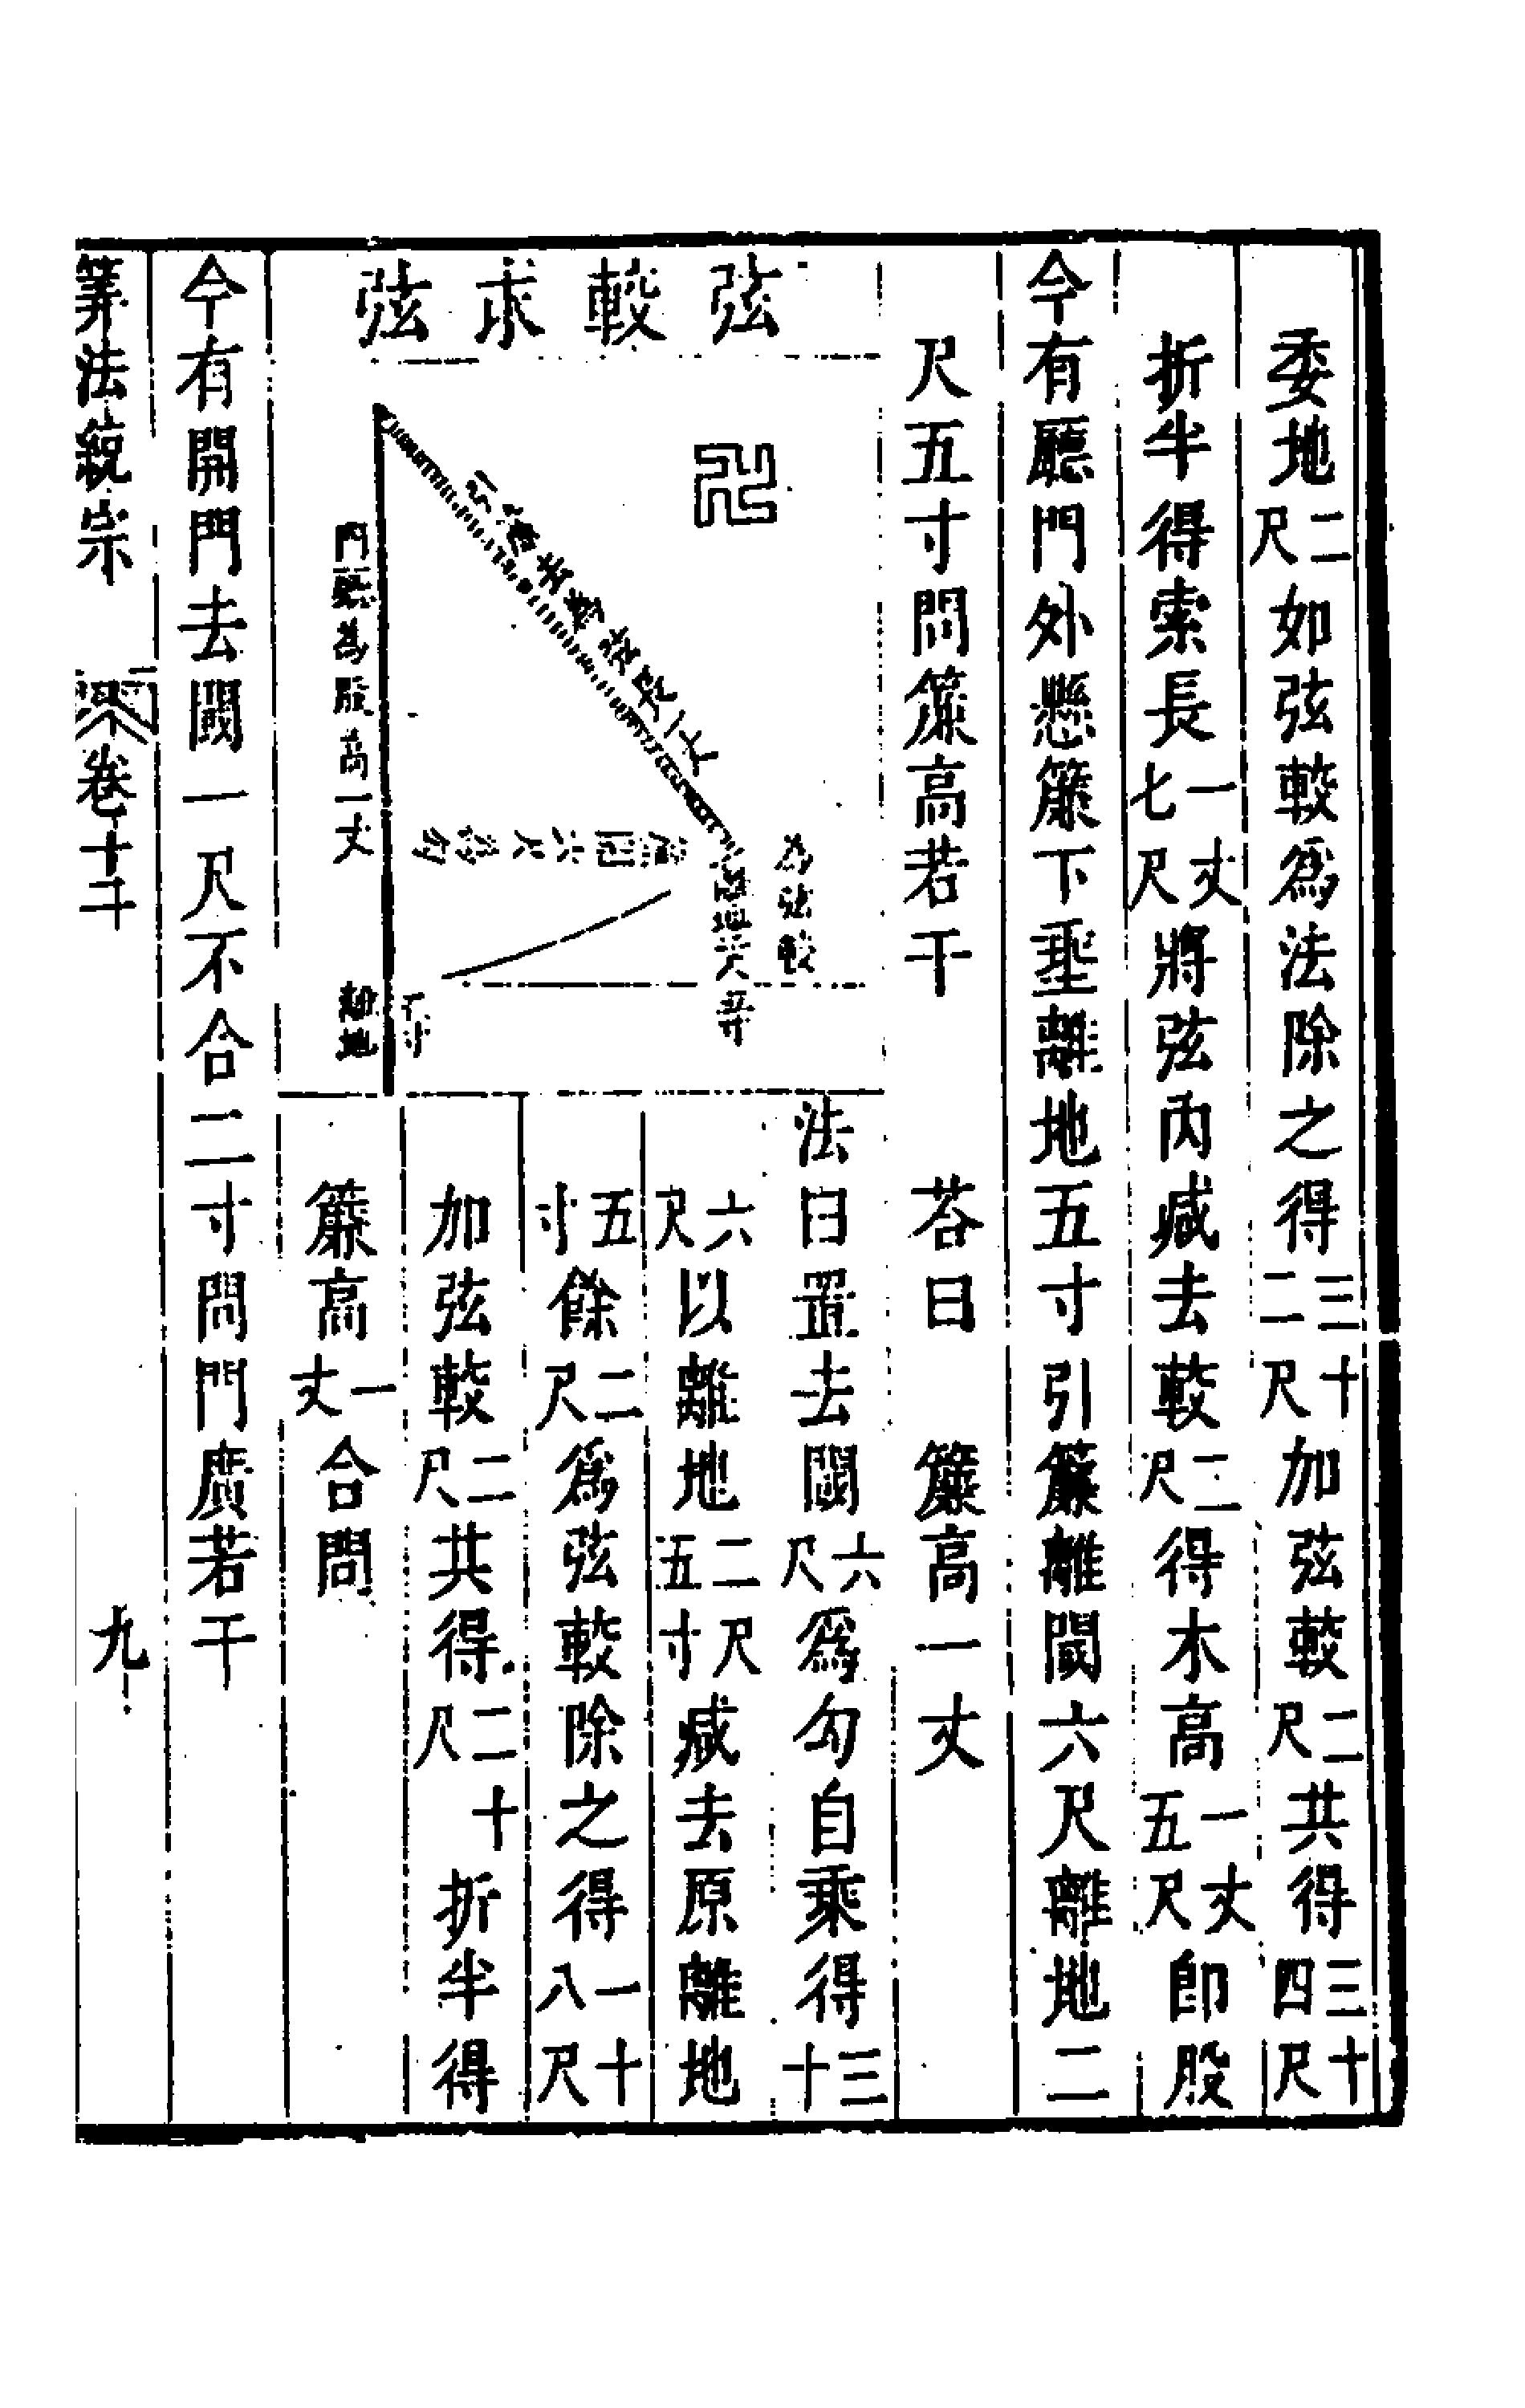 委地二尺如弦較爲法除之得三十二尺加弦較二尺共得三十四尺
折半得索長一丈七尺將弦內減去較二尺得木高一丈五尺卽股
今有廳門外懸簾下垂離地五寸引簾離閾六尺離地二
尺五寸問簾高若干　荅曰　簾高一丈
弦較求弦
卍
門
為股高一丈
離地五寸
為弦較
法曰置去閾六尺爲勾自乘得三十
六尺以離地二尺五寸減去原離地
五寸餘二尺爲弦較除之得一十八尺
加弦較二尺共得二十尺折半得
簾高一丈合問
今有開門去閫一尺不合二寸問門廣若干
筭法統宗　卷十二　九